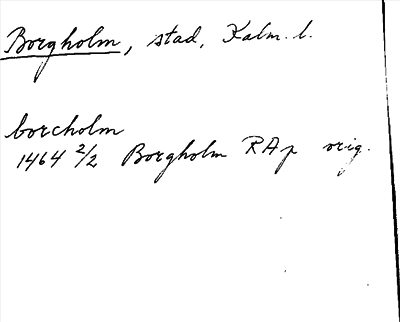 Borgholm, stad, Kalm. l.
borcholm
1464 2/2 Borgholm RAp orig.